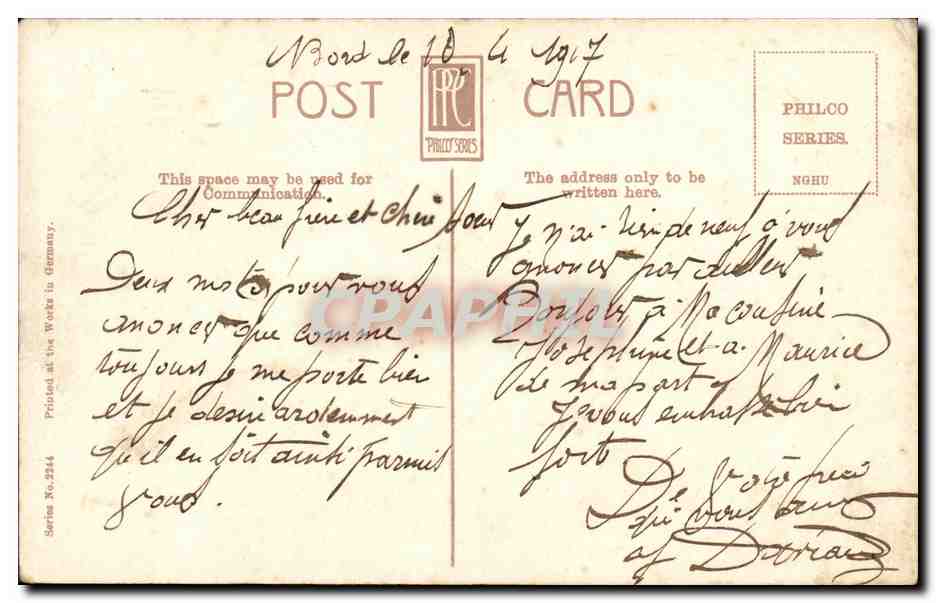 Nord le 18 4 1917
POST CARD
PPC
"PHILCO" SERIES
PHILCO
SERIES.
NGHU
This space may be used for
Communication.
The address only to be
written here.
Series No. 2244 Printed at the Works in Germany.
Cher beau frère et chère soeur
Deux mots pour vous
anoncer que comme
toujours je me porte bien
et je desir ardemment
qu'il en soit ainsi parmis
vous.
Je n'ai rien de neuf à vous
anoncer par ailleurs
Bonjour à Ma cousine
Joséphine et a Maurice
de ma part
Je vous embrasse bien
fort
Votre frère
qui vous aime
CPARAMA